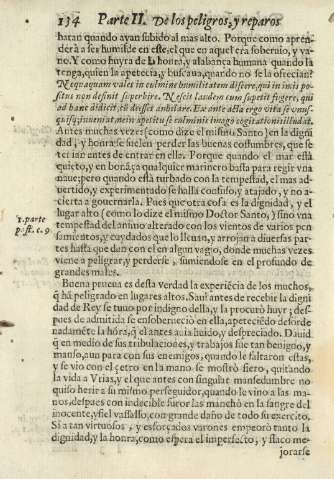 134 Parte II. De los peligros, y reparos
haràn quando ayan subido al mas alto. Porque como apren-
derà a ser humilde en este, el que en aquel era soberuio, y va-
no. Y como huyra de la honra, y alabança humana quando la
tenga, quien la apetecia, y buscaua, quando no se la ofrecian?
Nequaquam valet in culmine humilitatem discere, qui in imis po
situs non desinit superbire. Nescit laudem cum suppetit fugere, qui
ad hanc didicit, cũ deesset anhelare. Ex ante acta ergo vita se vnus-
quisq; inueniat, ne in apetitu se culminis imago cogitationis illudat.
Antes muchas vezes (como dize el mismo Santo) en la digni
dad, y honra se suelen perder las buenas costumbres, que se
tenian antes de entrar en ella. Porque quando el mar està
quieto, y en bonãça; qualquier marinero basta para regir vna
naue; pero quando està turbado con la tempestad, el mas ad
uertido, y experimentado se halla confuso, y atajado, y no a-
cierta a gouernarla. Pues que otra cosa es la dignidad, y el
lugar alto (como lo dize el mismo Doctor Santo,) sino vna
tempestad del animo alterado con los vientos de varios pen
samientos, y cuydados que lo lleuan, y arrojan a diuersas par
tes hasta que dan con el en algun vagio, donde muchas vezes
viene a peligrar, y perderse, sumiendose en el profundo de
grandes males.
1. parte
past. c. 9.
Buena prueua es desta verdad la experiẽcia de los muchos,
q̃ hã peligrado en lugares altos. Saul antes de recebir la digni
dad de Rey se tuuo por indigno della, y la procurò huyr; des-
pues de admitida se ensoberueciò en ella, apeteciẽdo desor-
nadamẽte la hõra, q̃ el antes auia huido, y despreciado. Dauid
q̃ en medio de sus tribulaciones, y trabajos fue tan benigno, y
manso, aun para con sus enemigos, quando le faltaron estas,
y se vio con el cetro en la mano se mostrò fiero, quitando
la vida a Vrias, y el que antes con singular mansedumbre no
quiso herir a su mismo perseguidor, quando le vino a las ma-
nos, despues con indecible furor las manchò en la sangre del
inocente, y fiel vassallo, con grande daño de todo su exercito.
Si a tan virtuosos, y esforçados varones empeorò tanto la
dignidad, y la honra, como espera el imperfecto, y flaco me-
jorarse